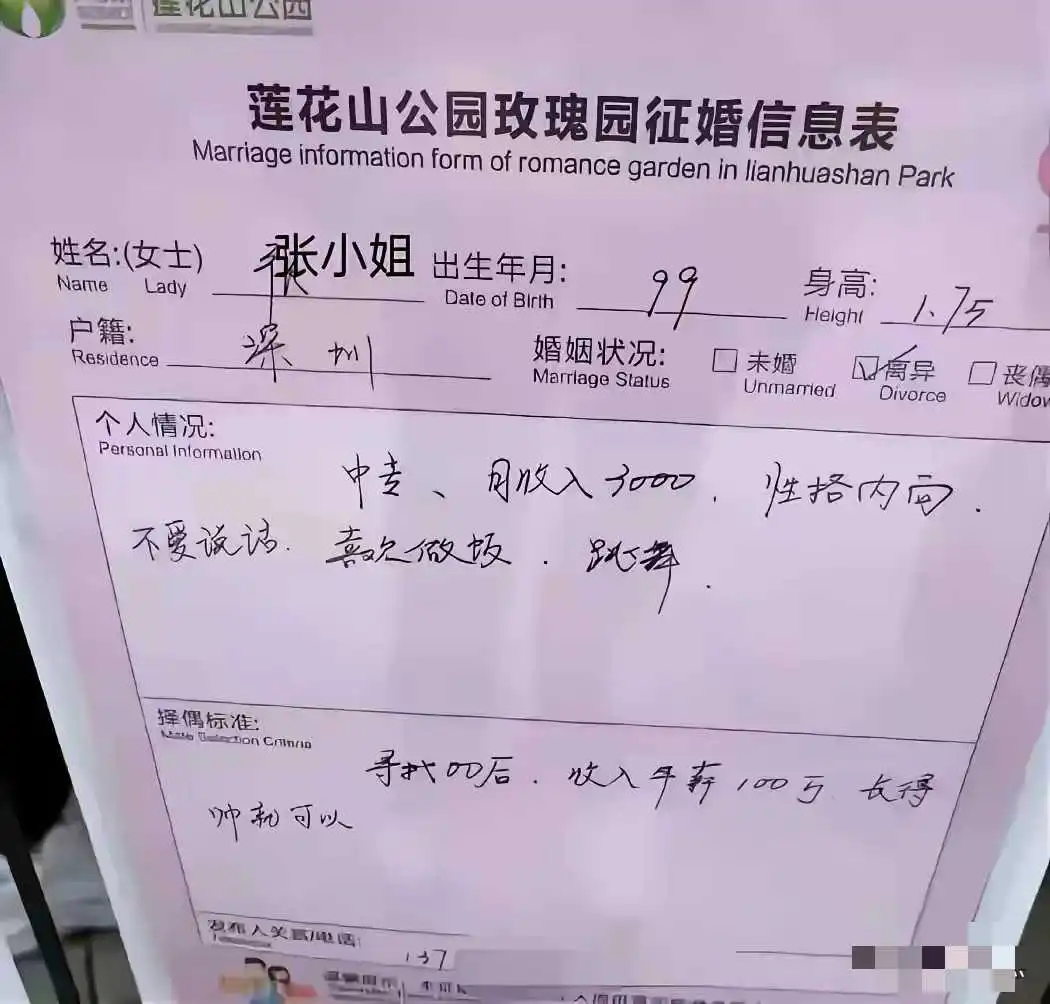 莲花山公园
莲花山公园玫瑰园征婚信息表
Marriage information form of romance garden in lianhuashan Park
姓名:(女士) 张小姐 出生年月: 99 身高: 1.75
Name Lady Date of Birth Height
户籍: 深圳 婚姻状况: 未婚 离异 丧偶
Residence Marriage Status Unmarried Divorce Widow
个人情况:
Personal Information
中专、月收入3000. 性格内向.
不爱说话. 喜欢做饭. 跳舞.
择偶标准:
Mate Selection Criteria
寻找00后. 收入年薪100万 长得
帅就可以
发布人关系/电话: 137